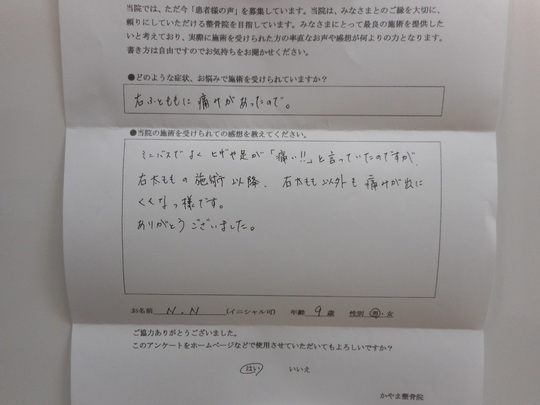 当院では、ただ今「患者様の声」を募集しています。当院は、みなさまとのご縁を大切に、
頼りにしていただける整骨院を目指しています。みなさまにとって最良の施術を提供した
いと考えており、実際に施術を受けられた方の率直なお声や感想が何よりの力となります。
書き方は自由ですのでお気持ちをお聞かせください。
●どのような症状、お悩みで施術を受けられていますか？
右ふとももに痛みがあったので。
●当院の施術を受けられての感想を教えてください。
ミニバスでよくヒザや足が「痛い!!」と言っていたのですが、
右太ももの施術以降、右太もも以外も痛みが出に
くくなっ様です。
ありがとうございました。
お名前 N.N （イニシャル可） 年齢 9 歳 性別 男・女
ご協力ありがとうございました。
このアンケートをホームページなどで使用させていただいてもよろしいですか？
はい いいえ
かやま整骨院